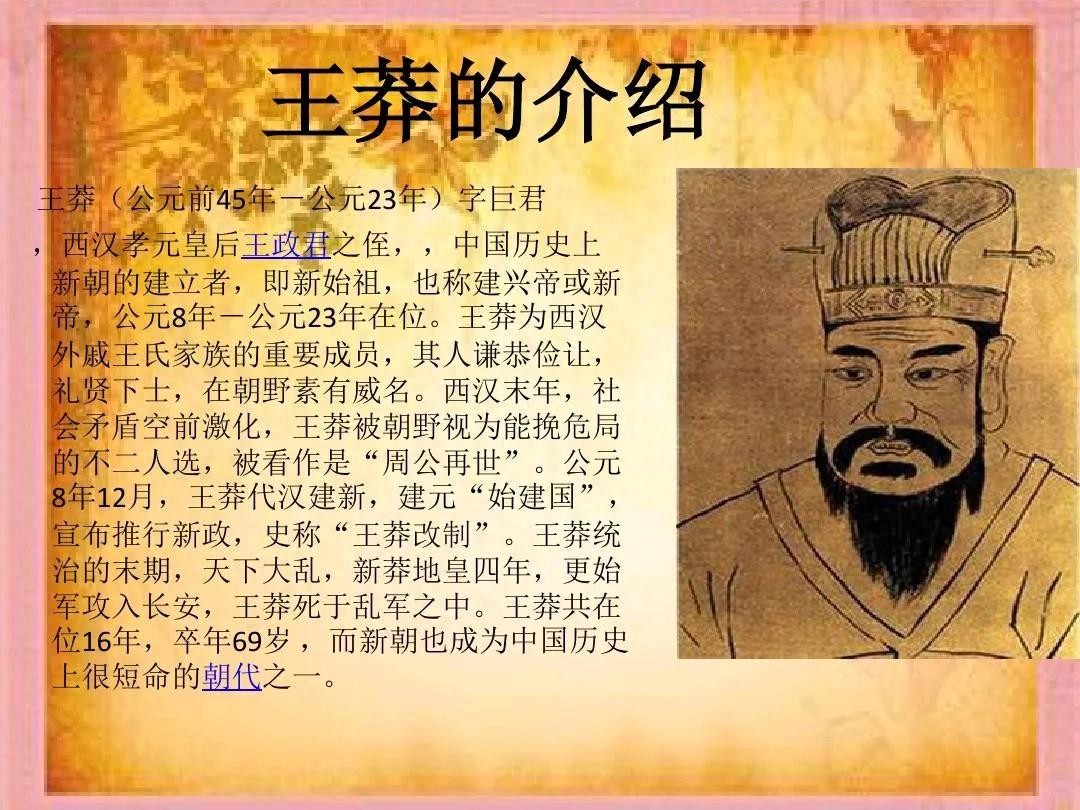 王莽的介绍
王莽（公元前45年－公元23年）字巨君
，西汉孝元皇后王政君之侄，，中国历史上
新朝的建立者，即新始祖，也称建兴帝或新
帝，公元8年－公元23年在位。王莽为西汉
外戚王氏家族的重要成员，其人谦恭俭让，
礼贤下士，在朝野素有威名。西汉末年，社
会矛盾空前激化，王莽被朝野视为能挽危局
的不二人选，被看作是“周公再世”。公元
8年12月，王莽代汉建新，建元“始建国”，
宣布推行新政，史称“王莽改制”。王莽统
治的末期，天下大乱，新莽地皇四年，更始
军攻入长安，王莽死于乱军之中。王莽共在
位16年，卒年69岁 ，而新朝也成为中国历史
上很短命的朝代之一。